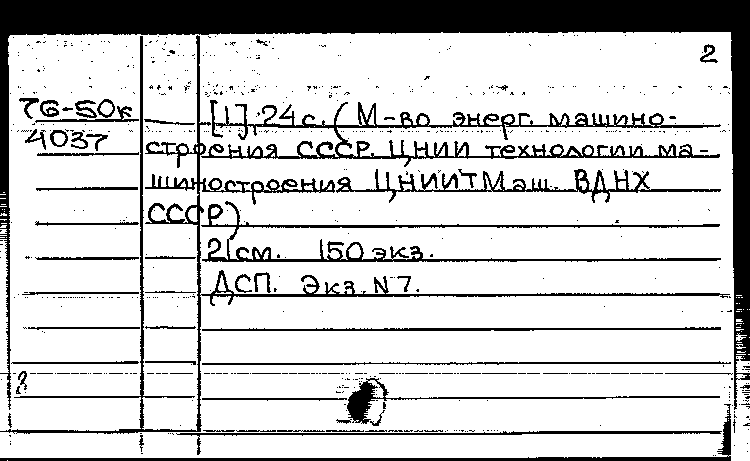 2
76-50к
4037
[1], 24 с. (М-во энерг. машино-
строения СССР. ЦНИИ технологии ма-
шиностроения ЦНИИТМаш. ВДНХ
СССР).
21 см. 150 экз.
ДСП. Экз. N 7.